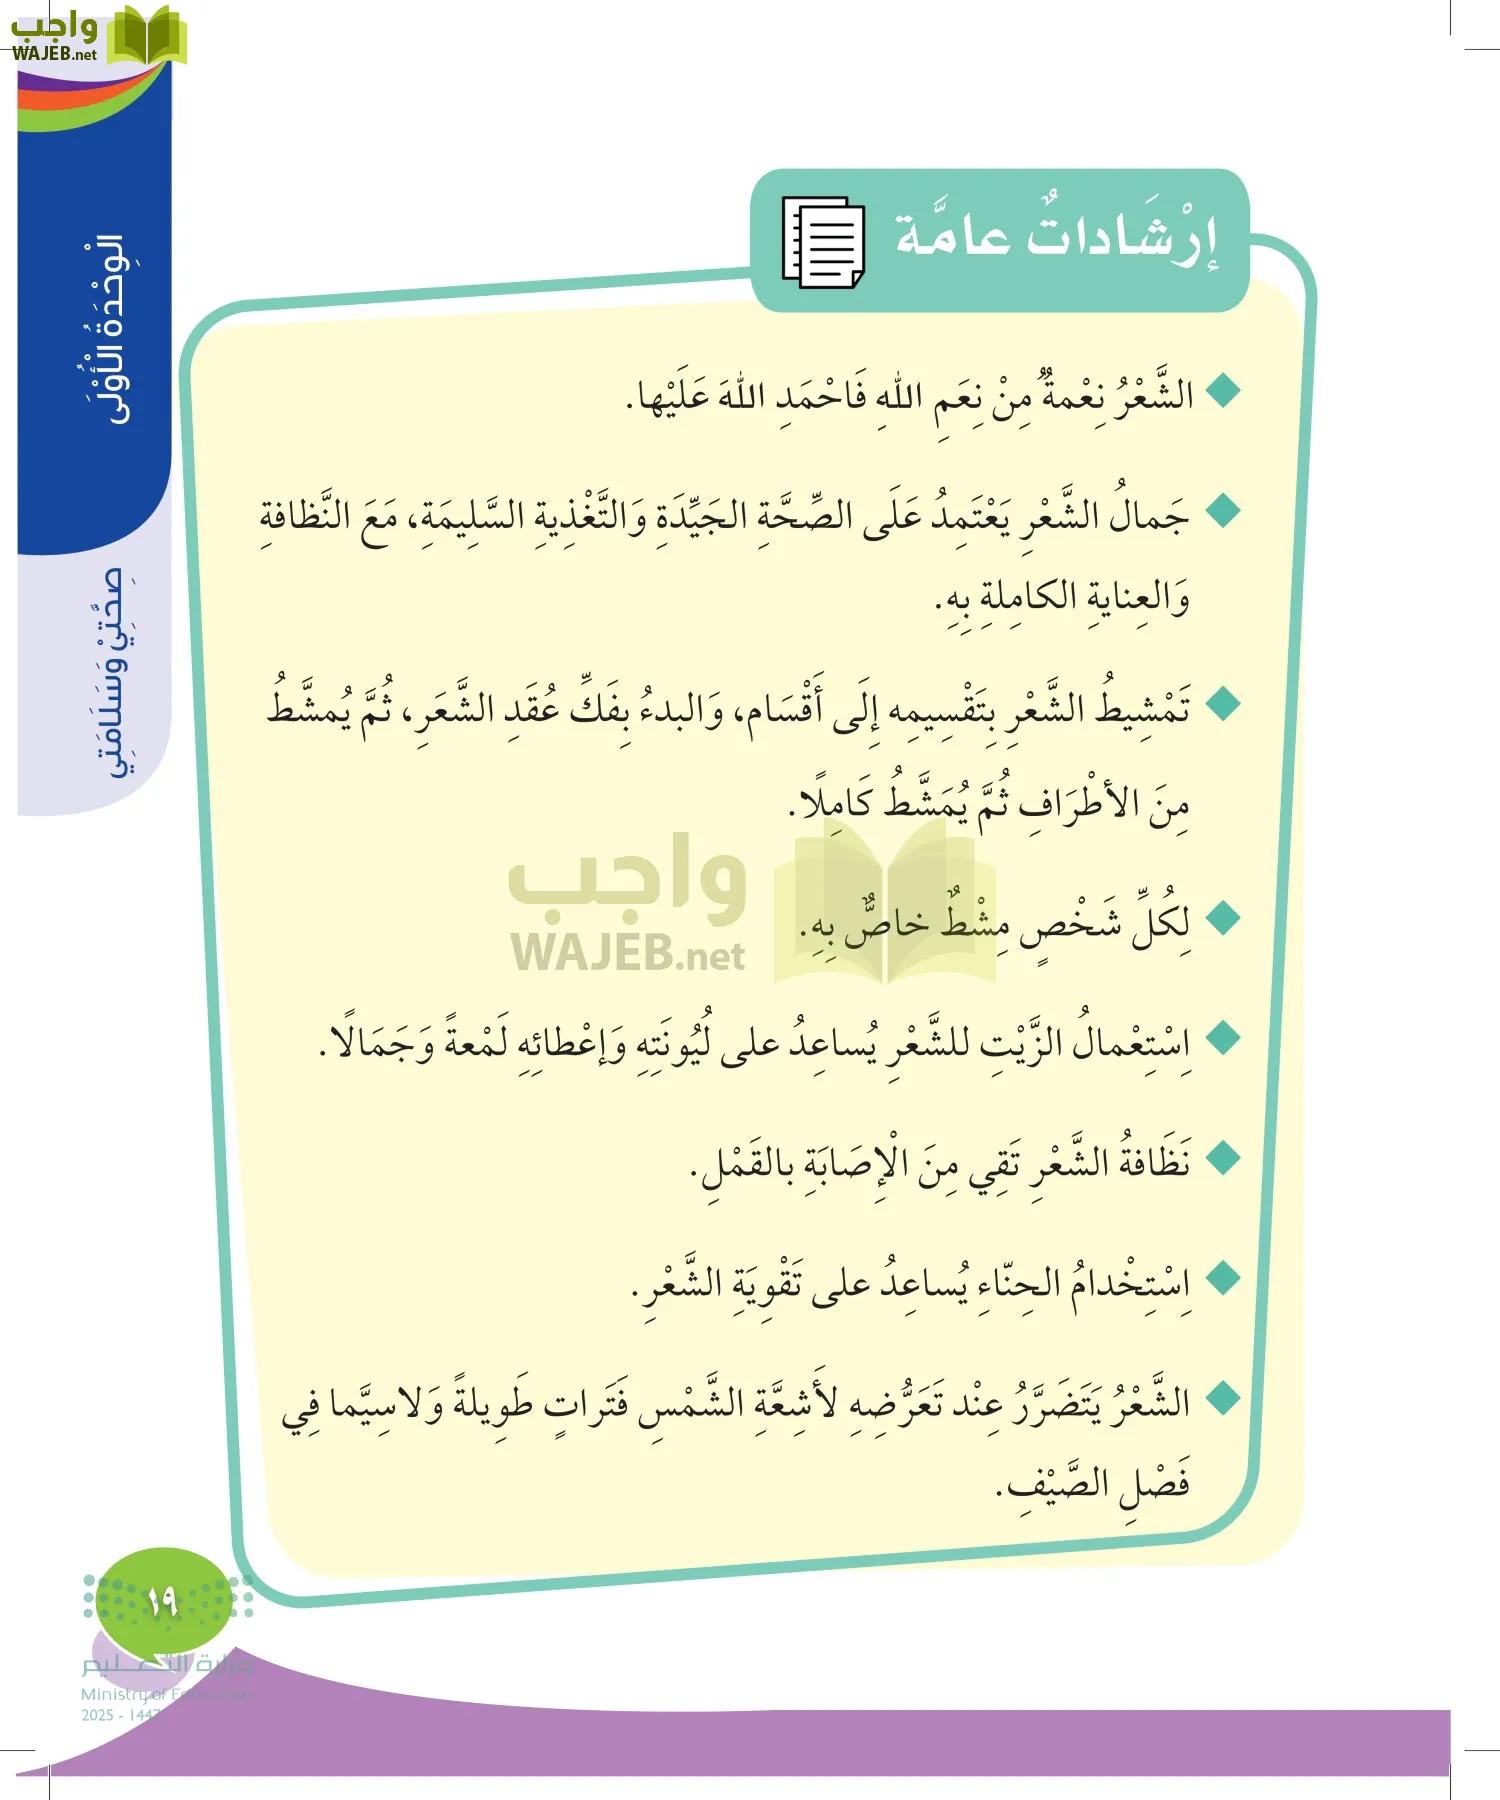 واجب
WAJEB.net
الْوِحْدَةُ الْأُوْلَى
صِحَّتِيْ وَسَلَامَتِي
إرْشَاداتٌ عامَّة
الشَّعْرُ نِعْمةٌ مِنْ نِعَمِ اللهِ فَاحْمَدِ اللهَ عَلَيْها.
جَمالُ الشَّعْرِ يَعْتَمِدُ عَلَى الصِّحَّةِ الجَيِّدَةِ وَالتَّغْذِيةِ السَّلِيمَةِ، مَعَ النَّظافةِ
وَالعِنايةِ الكامِلةِ بِهِ.
تَمْشِيطُ الشَّعْرِ بِتَقْسِيمِه إِلَى أَقْسَام، وَالبدءُ بِفَكِّ عُقَدِ الشَّعَرِ، ثُمَّ يُمشَّطُ
مِنَ الأطْرَافِ ثُمَّ يُمَشَّطُ كَامِلًا.
لِكُلِّ شَخْصٍ مِشْطٌ خاصٌّ بِهِ.
واجب
WAJEB.net
اِسْتِعْمالُ الزَّيْتِ للشَّعْرِ يُساعِدُ على لُيُونَتِهِ وَإعْطائِهِ لَمْعةً وَجَمَالًا.
نَظَافةُ الشَّعْرِ تَقِي مِنَ الْإِصَابَةِ بالقَمْلِ.
اِسْتِخْدامُ الحِنّاءِ يُساعِدُ على تَقْوِيَةِ الشَّعْرِ.
الشَّعْرُ يَتَضَرَّرُ عِنْد تَعَرُّضِهِ لأَشِعَّةِ الشَّمْسِ فَتَراتٍ طَوِيلةً وَلاسِيَّما فِي
فَصْلِ الصَّيْفِ.
١٩
وزارة التعليم
Ministry of Education
2025 - 1447